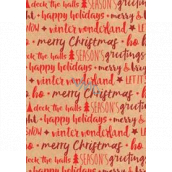 deck the halls SEASON'S greetings
happy holidays merry &
SNOW winter wonderland LET IT
ho merry Christmas ho
deck the halls SEASON'S greetings
happy holidays merry &
winter wonderland LET IT
ho merry Christmas ho
deck the halls SEASON'S greetings
happy holidays merry &
SNOW winter wonderland LET IT
merry Christmas ho
deck the halls SEASON'S